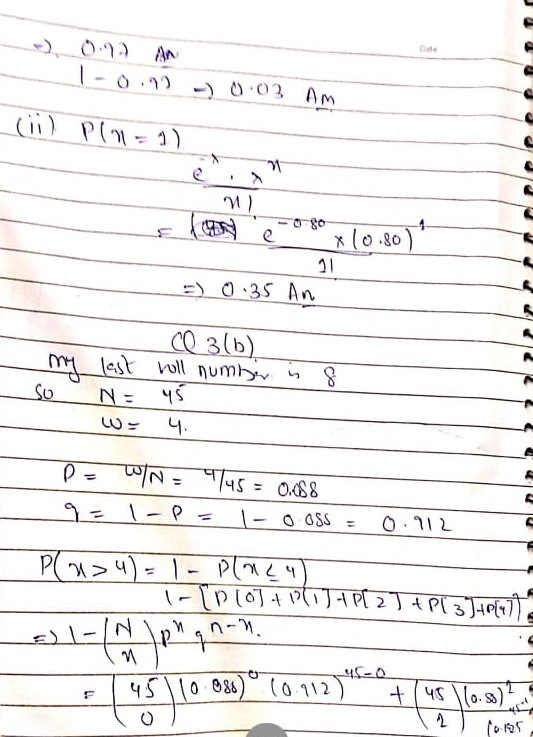 Date
=> 0.97 An
1 - 0.97 => 0.03 Am
(ii) P(x = 1)
e^-λ . λ^x
x!
= e^-0.80 × (0.80)^1
1!
=> 0.35 An
Q 3(b)
my last roll number is 8
so N = 45
W = 4.
P = W/N = 4/45 = 0.088
q = 1 - P = 1 - 0.088 = 0.912
P(x > 4) = 1 - P(x ≤ 4)
1 - [P[0] + P[1] + P[2] + P[3] + P[4]]
=> 1 - (N x) p^x q^n-x.
= (45 0) (0.088)^0 (0.912)^45-0 + (45